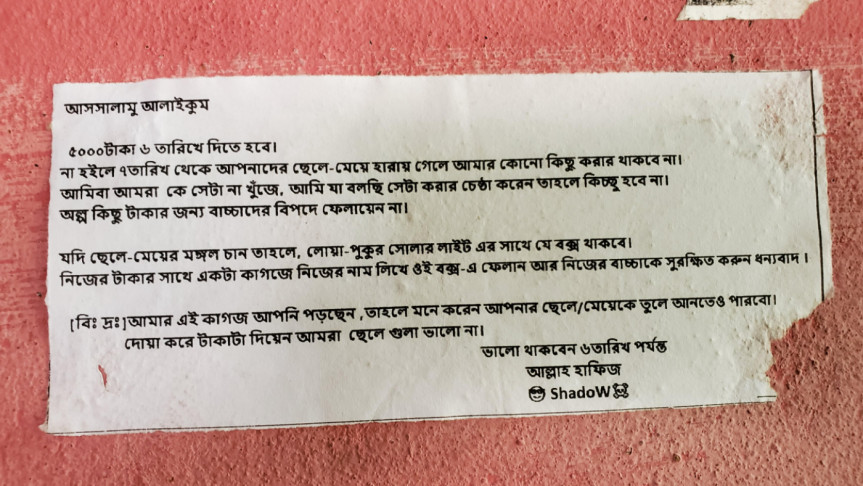 আসসালামু আলাইকুম
৫০০০টাকা ৬ তারিখে দিতে হবে।
না হইলে ৭তারিখ থেকে আপনাদের ছেলে-মেয়ে হারায় গেলে আমার কোনো কিছু করার থাকবে না।
আমিবা আমরা কে সেটা না খুঁজে, আমি যা বলছি সেটা করার চেষ্ঠা করেন তাহলে কিচ্ছু হবে না।
অল্প কিছু টাকার জন্য বাচ্চাদের বিপদে ফেলায়েন না।
যদি ছেলে-মেয়ের মঙ্গল চান তাহলে, লোয়া-পুকুর সোলার লাইট এর সাথে যে বক্স থাকবে।
নিজের টাকার সাথে একটা কাগজে নিজের নাম লিখে ওই বক্স-এ ফেলান আর নিজের বাচ্চাকে সুরক্ষিত করুন ধন্যবাদ ।
[বিঃ দ্রঃ]আমার এই কাগজ আপনি পড়ছেন ,তাহলে মনে করেন আপনার ছেলে/মেয়েকে তুলে আনতেও পারবো।
দোয়া করে টাকাটা দিয়েন আমরা ছেলে গুলা ভালো না।
ভালো থাকবেন ৬তারিখ পর্যন্ত
আল্লাহ হাফিজ
😎 ShadoW